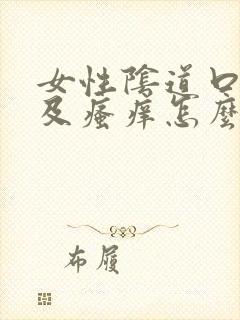 女性陰道口
及瘙痒怎麼
布履